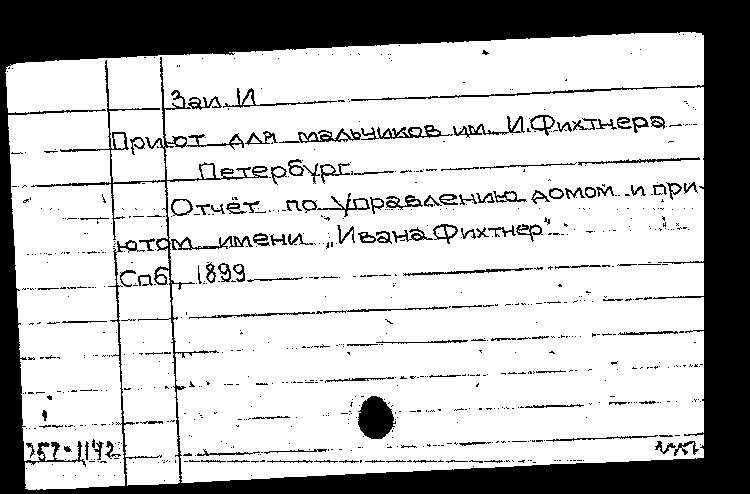 Зал. И
Приют для мальчиков им. И.Фихтнера
Петербург.
Отчёт по управлению домом и при-
ютом имени „Ивана Фихтнер"
Спб., 1899
257-1142